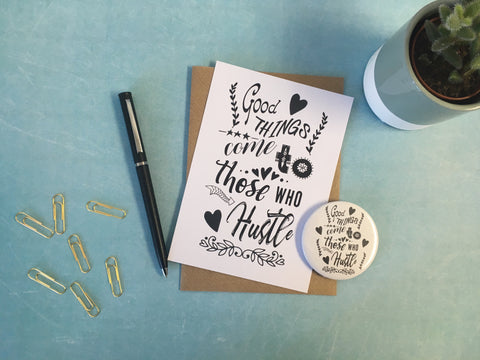 Good
THINGS
come to
those WHO
Hustle
Good
THINGS
come to
those WHO
Hustle